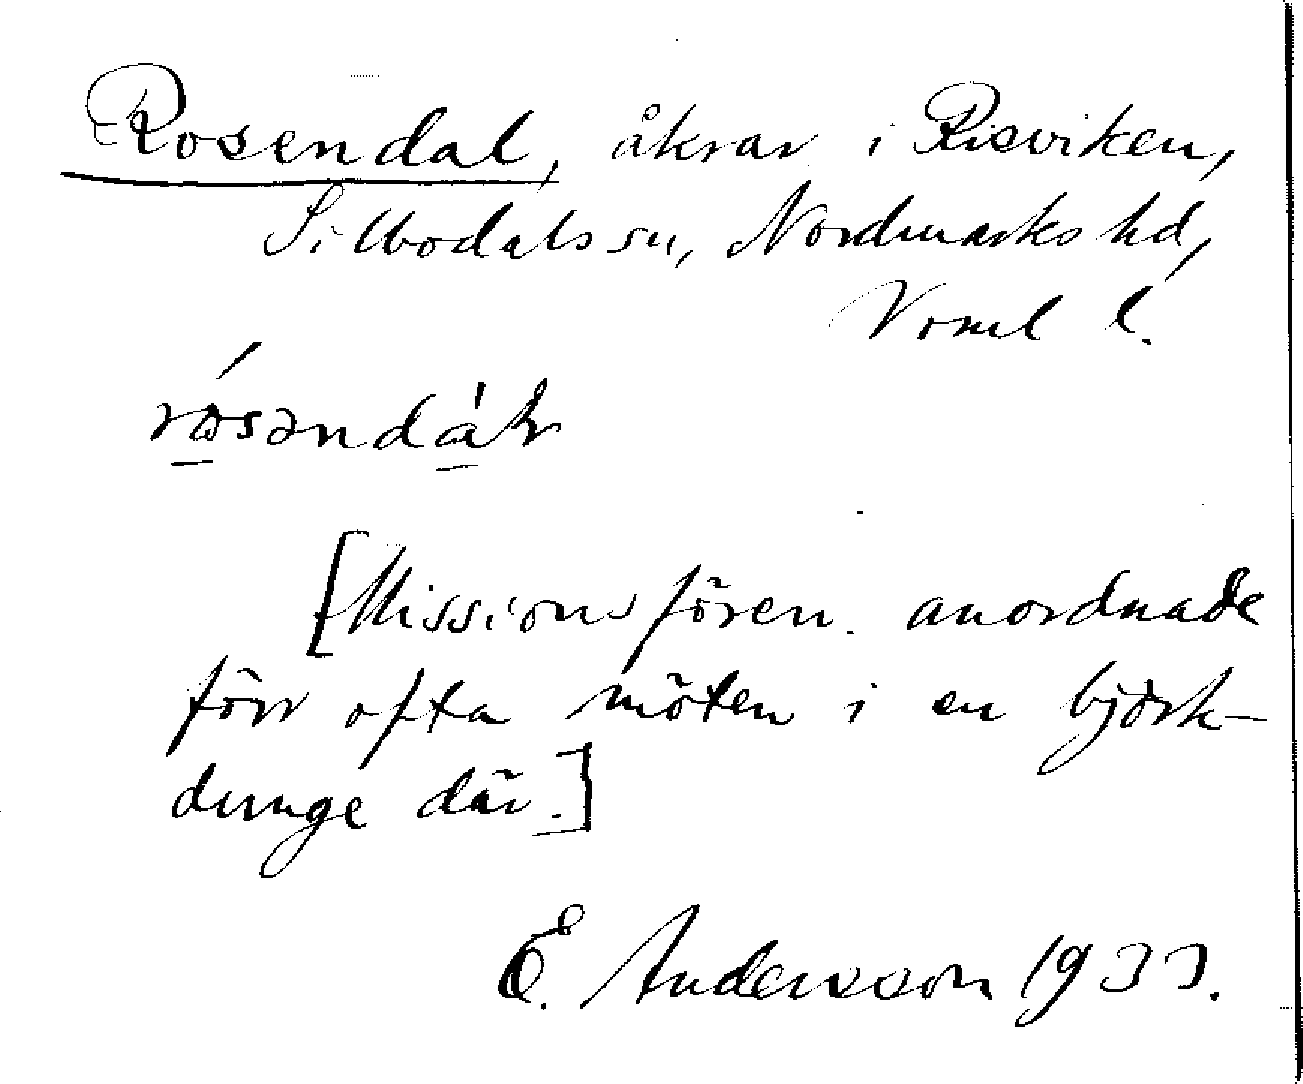 Rosendal, åkrar i Risviken,
Silbodals sn, Nordmarks hd,
Vrml l.
[Missionsfören. anordnade
förr ofta möten i en björk-
dunge där.]
E. Andersson 1933.